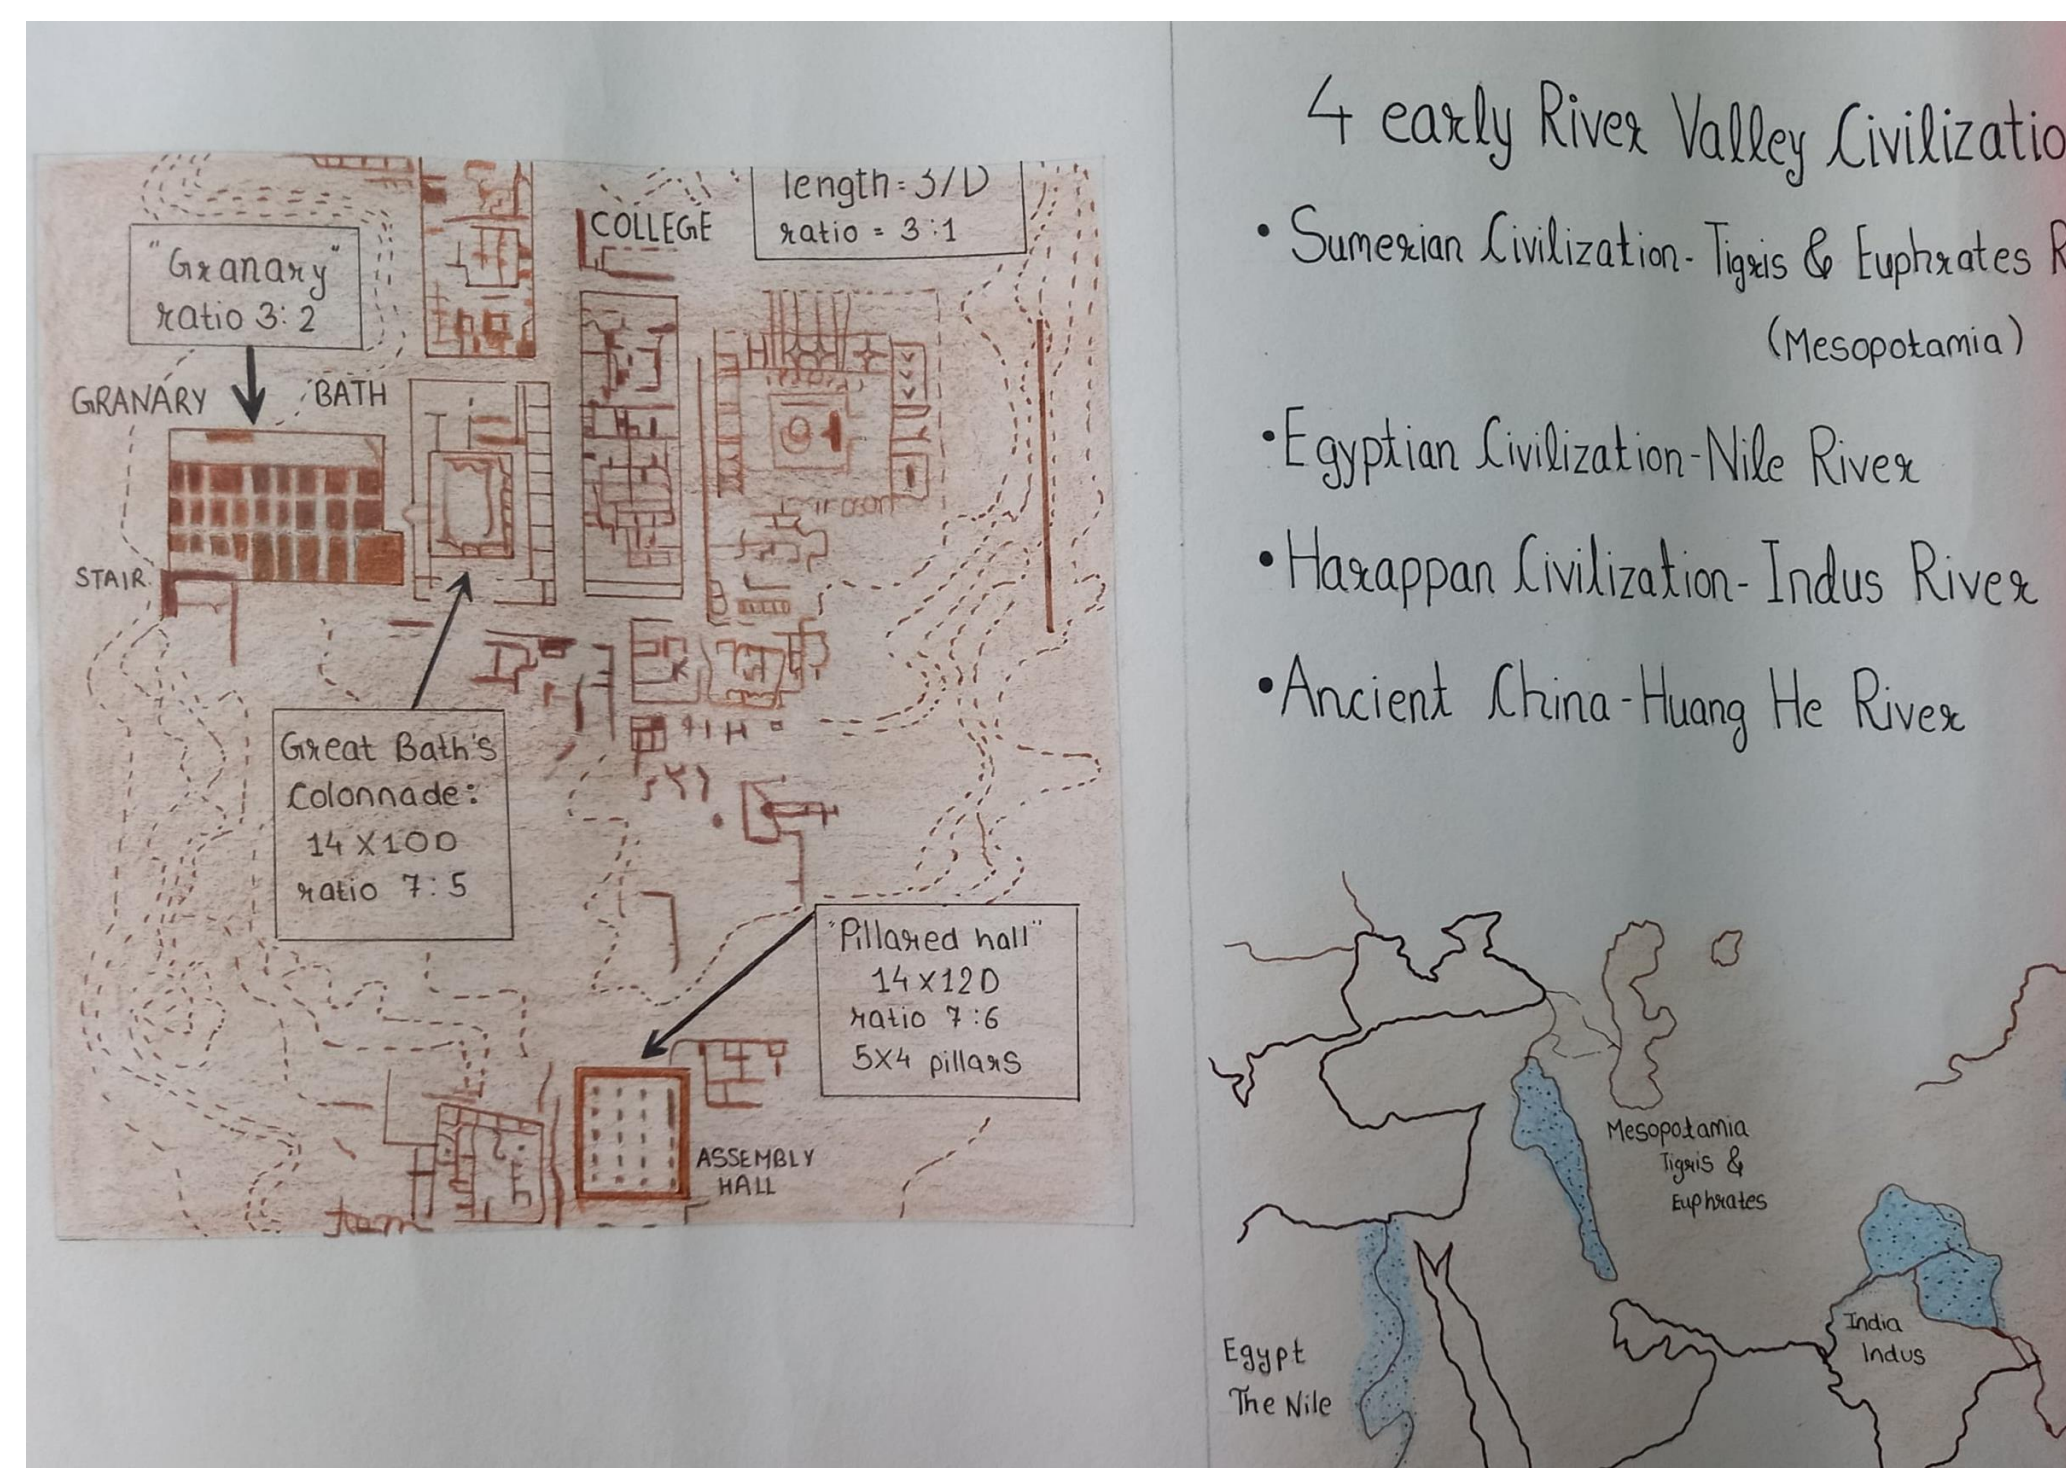 length = 37D
ratio = 3:1
COLLEGE
"Granary"
ratio 3:2
GRANARY
BATH
STAIR
Great Bath's
Colonnade:
14 X 10D
ratio 7:5
"Pillared hall"
14 x 12D
ratio 7:6
5X4 pillars
ASSEMBLY
HALL
4 early River Valley Civilizatio
• Sumerian Civilization - Tigris & Euphrates R
(Mesopotamia)
• Egyptian Civilization - Nile River
• Harappan Civilization - Indus River
• Ancient China - Huang He River
Mesopotamia
Tigris &
Euphrates
India
Indus
Egypt
The Nile